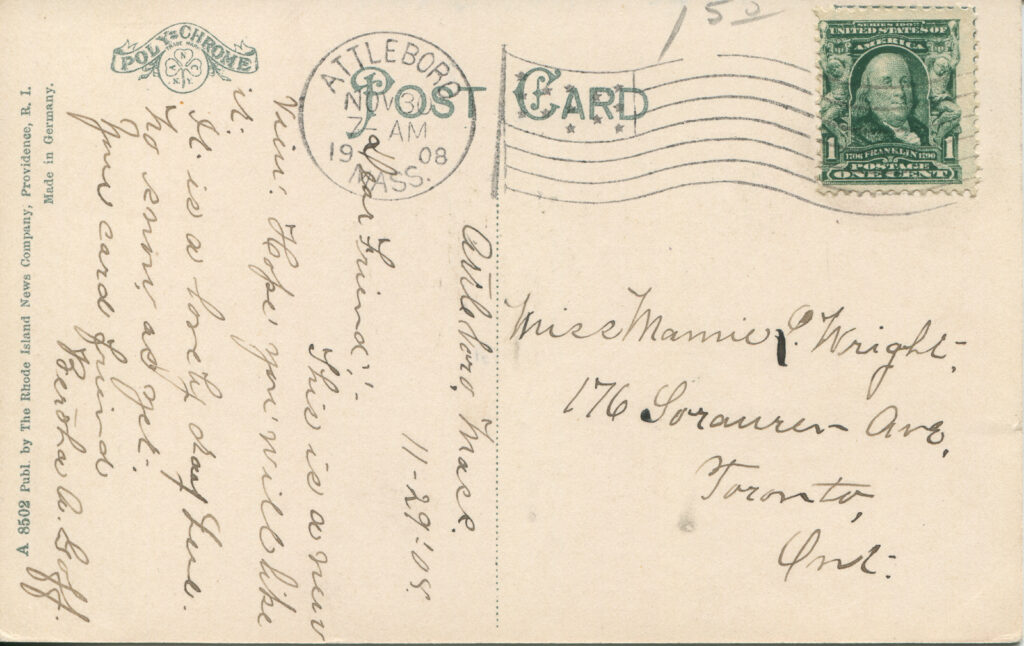 POLY-CHROME
TRADE MARK
POST CARD
ATTLEBORO
NOV 30
7- AM
19 08
MASS.
150
SERIES 1902
UNITED STATES OF
AMERICA
1 1
1706 FRANKLIN 1790
POSTAGE
ONE CENT
A 8502 Publ. by The Rhode Island News Company, Providence, R. I.
Made in Germany.
Attleboro, Mass.
11-29-'08.
Dear Friend:-
This is a new
View. Hope you will like
it.
It is a lovely day here.
No snow as yet.
Your card friend
Bertha A. Goff.
Miss Mamie P. Wright,
176 Sorauren Ave,
Toronto,
Ont.